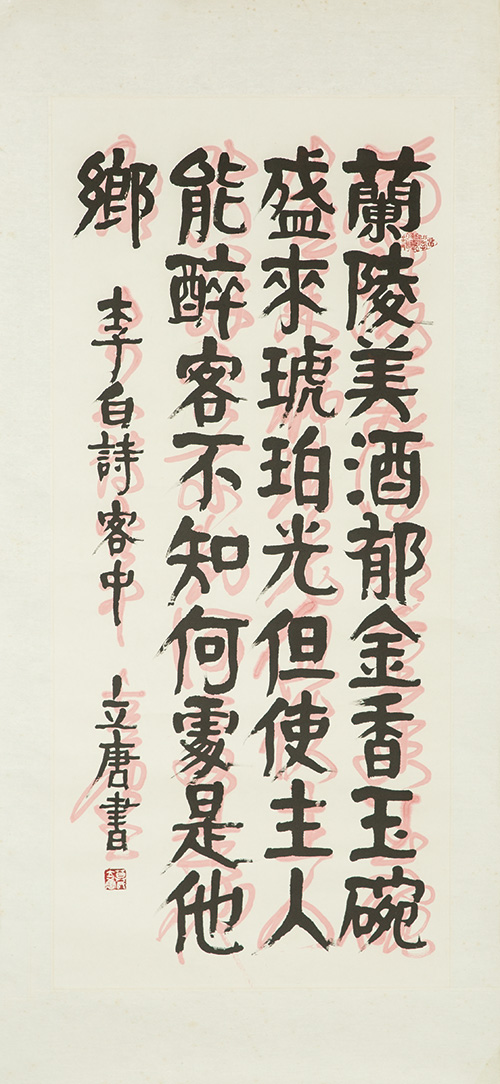 蘭陵美酒郁金香玉碗
盛來琥珀光但使主人
能醉客不知何處是他
鄉
李白詩客中 立唐書